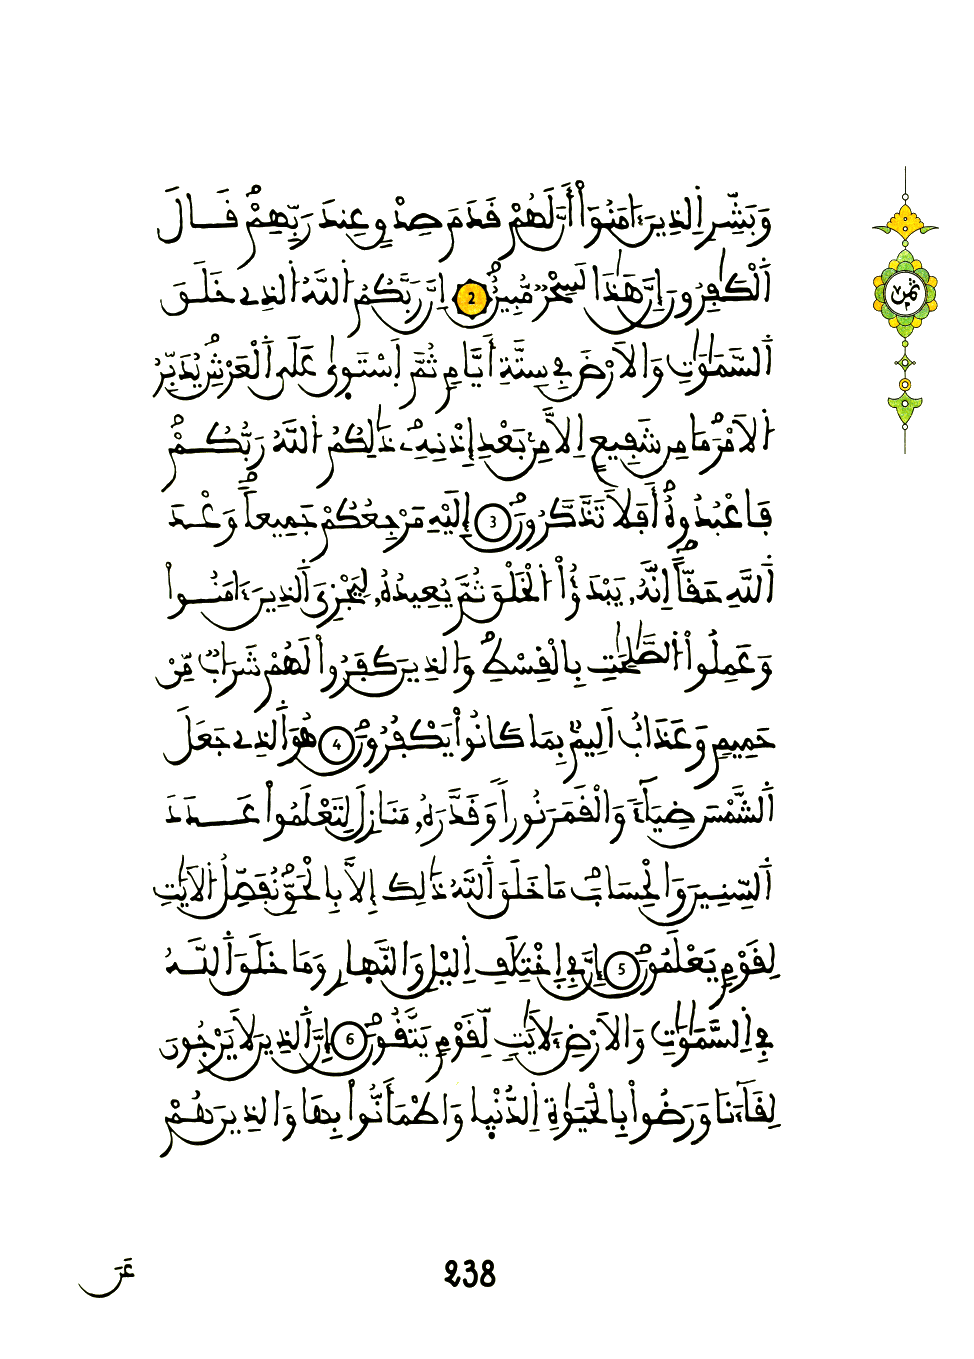 وَبَشِّرِ اِ۬لذِينَ ءَامَنُوٓاْ أَنَّ لَهُمْ قَدَمَ صِدْقٍ عِندَ رَبِّهِمْۖ قَالَ
اَ۬لْكَٰفِرُونَ إِنَّ هَٰذَا لَسِحْرٞ مُّبِينٌۖ 2 اِنَّ رَبَّكُمُ اُ۬للَّهُ اُ۬لذِے خَلَقَ
اَ۬لسَّمَٰوَٰتِ وَالَارْضَ فِے سِتَّةِ أَيَّامٖ ثُمَّ اَ۪سْتَو۪يٰ عَلَي اَ۬لْعَرْشِۖ يُدَبِّرُ
اُ۬لَامْرَۖ مَا مِن شَفِيعٍ اِلَّا مِنۢ بَعْدِ إِذْنِهِۦۖ ذَٰلِكُمُ اُ۬للَّهُ رَبُّكُمْۖ
فَاعْبُدُوهُۖ أَفَلَا تَذَّكَّرُونَۖ 3 إِلَيْهِ مَرْجِعُكُمْ جَمِيعاٗۖ وَعْدَ
اَ۬للَّهِ حَقّاًۖ اِنَّهُۥ يَبْدَؤُاْ اُ۬لْخَلْقَ ثُمَّ يُعِيدُهُۥ لِيَجْزِيَ اَ۬لذِينَ ءَامَنُواْ
وَعَمِلُواْ اُ۬لصَّٰلِحَٰتِ بِالْقِسْطِۖ وَالذِينَ كَفَرُواْ لَهُمْ شَرَابٞ مِّنْ
حَمِيمٖ وَعَذَابٌ اَلِيمُۢ بِمَا كَانُواْ يَكْفُرُونَۖ 4 هُوَ اَ۬لذِے جَعَلَ
اَ۬لشَّمْسَ ضِيَآءٗ وَالْقَمَرَ نُوراٗ وَقَدَّرَهُۥ مَنَازِلَ لِتَعْلَمُواْ عَدَدَ
اَ۬لسِّنِينَ وَالْحِسَابَۖ مَا خَلَقَ اَ۬للَّهُ ذَٰلِكَ إِلَّا بِالْحَقِّۖ نُفَصِّلُ اُ۬لَايَٰتِ
لِقَوْمٖ يَعْلَمُونَۖ 5 إِنَّ فِے اِ۪خْتِلَٰفِ اِ۬ليْلِ وَالنَّه۪ارِ وَمَا خَلَقَ اَ۬للَّهُ
فِے اِ۬لسَّمَٰوَٰتِ وَالَارْضِ ءَلَايَٰتٖ لِّقَوْمٖ يَتَّقُونَۖ 6 إِنَّ اَ۬لذِينَ لَا يَرْجُونَ
لِقَآءَنَا وَرَضُواْ بِالْحَيَوٰةِ اِ۬لدُّنْي۪ا وَاطْمَأَنُّواْ بِهَا وَالذِينَ هُمْ
ثمن
عَنَ
238